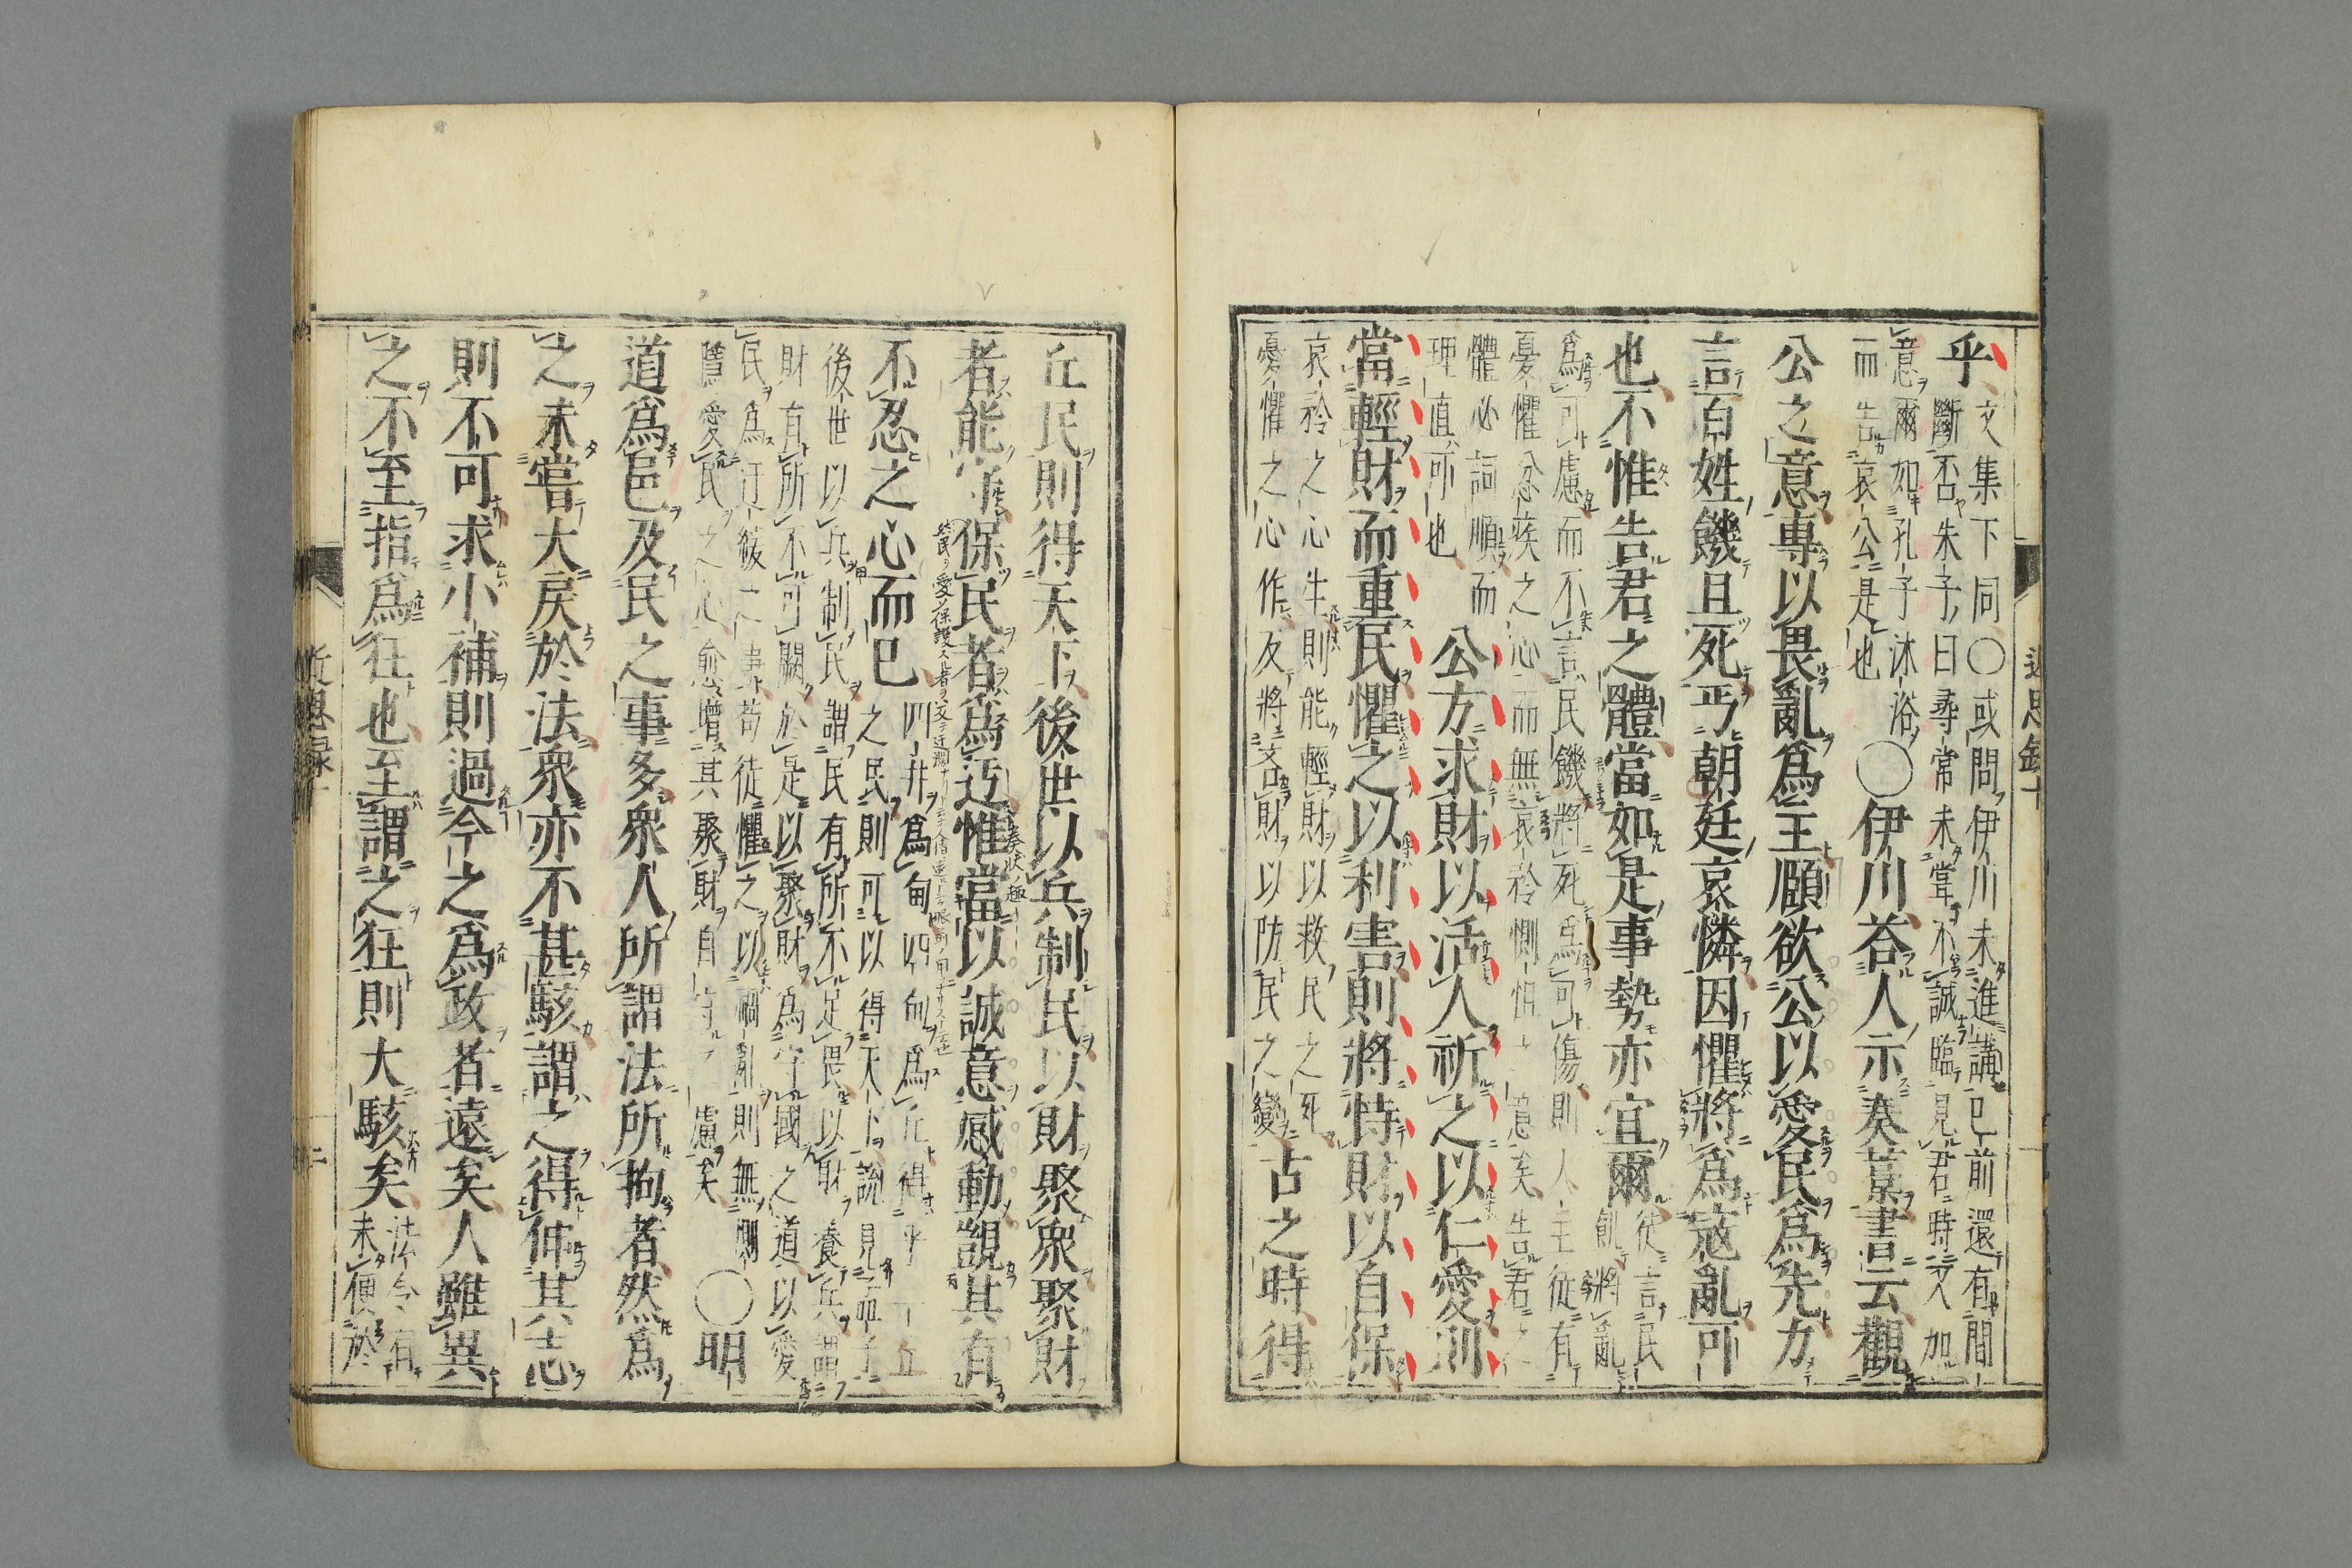 近思録十
乎
文集下同○或問伊川未進講已前還有間
斷否朱子曰尋常未嘗不誠臨見君時又加
意爾如孔子沐浴
而告哀公是也
○伊川荅人示奏藁書云觀
公之意專以畏亂爲主頤欲公以愛民爲先力
言百姓饑且死丐朝廷哀憐因懼將爲寇亂可
也不惟告君之體當如是事勢亦宜爾
徒言民
飢將亂
爲可慮而不言民饑將死爲可傷則人主徒有
憂懼忿疾之心而無哀矜惻怛之意矣告君之
體必詞順而
理直可也
公方求財以活人祈之以仁愛則
當輕財而重民懼之以利害則將恃財以自保
哀矜之心生則能輕財以救民之死
憂懼之心作反將吝財以防民之變
古之時得
丘民則得天下後世以兵制民以財聚衆聚財
者能守保民者爲迂惟當以誠意感動覬其有
不忍之心而已
四井爲甸四甸爲丘得乎丘
之民則可以得天下說見孟子
後世以兵制民謂民有所不足畏以財養兵謂
財有所不可闕於是以聚財爲守國之道以愛
民爲迂緩之事苟徒懼之以禍亂則無惻
隱愛民之心愈增其聚財自守之慮矣
○明
道爲邑及民之事多衆人所謂法所拘者然爲
之未嘗大戾於法衆亦不甚駭謂之得伸其志
則不可求小補則過今之爲政者遠矣人雖異
之不至指爲狂也至謂之狂則大駭矣
法令有
未便於
近思録十
二